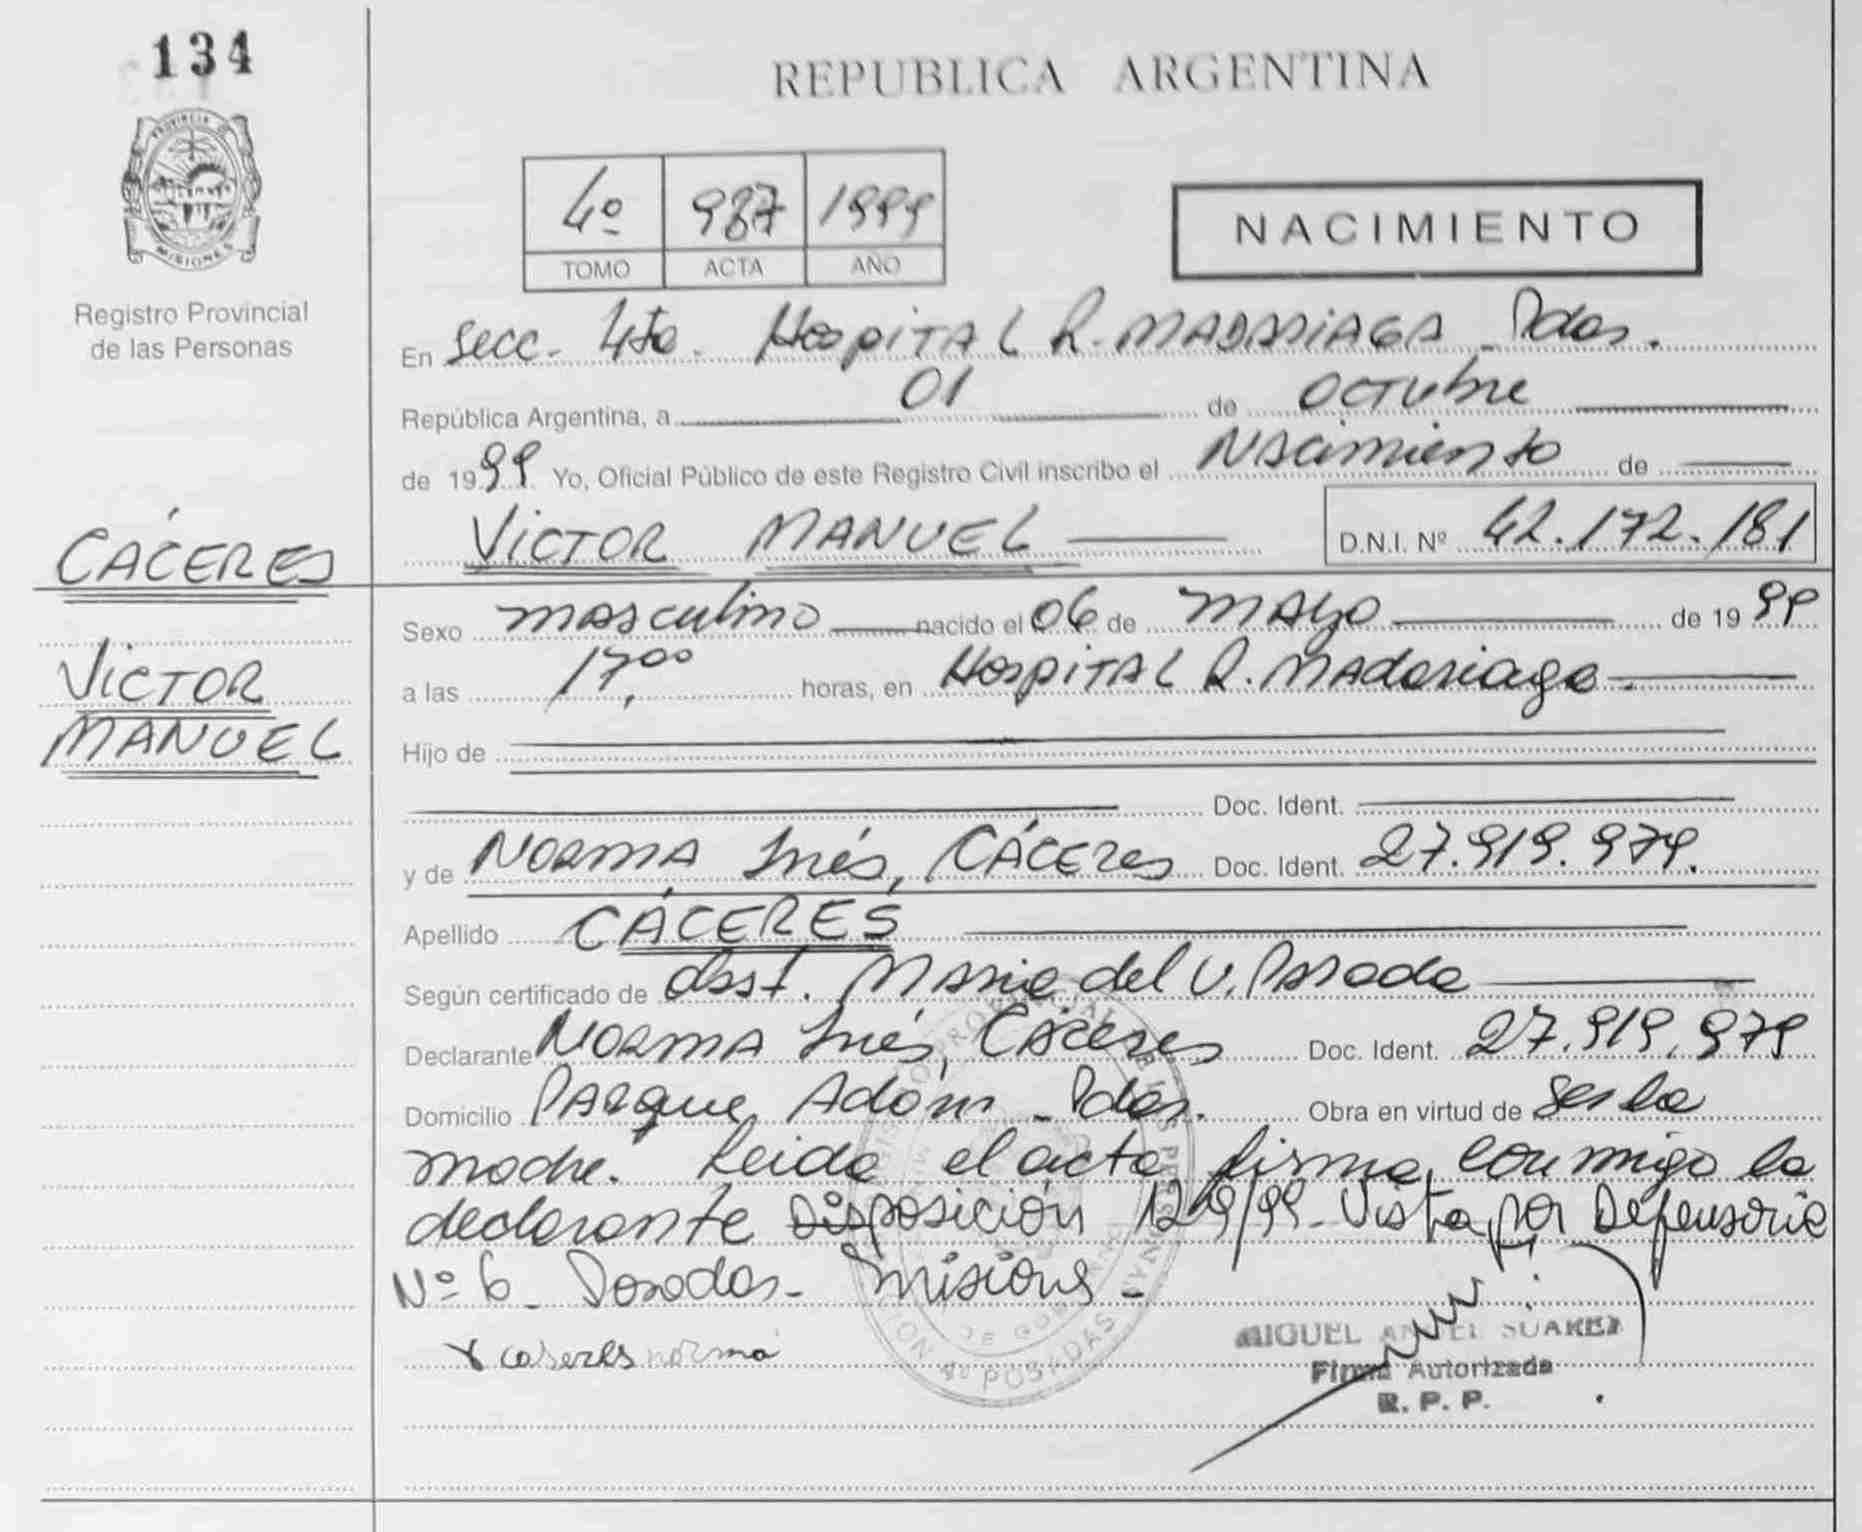 134
PROVINCIA DE
MISIONES
Registro Provincial
de las Personas
CÁCERES
VICTOR
MANUEL
REPUBLICA ARGENTINA
4º 987 1999
TOMO ACTA AÑO
NACIMIENTO
En Secc. 4ta. Hospital R. MADARIAGA - Pdas.
República Argentina, a 01 de octubre
de 1999 Yo, Oficial Público de este Registro Civil inscribo el Nacimiento de
VICTOR MANUEL D.N.I. Nº 42.172.181
Sexo masculino nacido el 06 de mayo de 1999
a las 17,00 horas, en Hospital R. Madariaga
Hijo de
Doc. Ident.
y de NORMA Inés, CÁCERes Doc. Ident. 27.919.979.
Apellido CÁCERES
Según certificado de obst. Maria del V. Parada
Declarante NORMA Inés, CÁCERes Doc. Ident. 27.919.979
Domicilio Parque Adám - Pdas. Obra en virtud de ser la
madre. Leida el acta firma conmigo la
declarante Disposición 1219/99 - Vista por Defensoria
Nº 6 - Posadas - Misiones -
x caseres norma
MIGUEL ANGEL SUAREZ
Firma Autorizada
R. P. P.
POSADAS